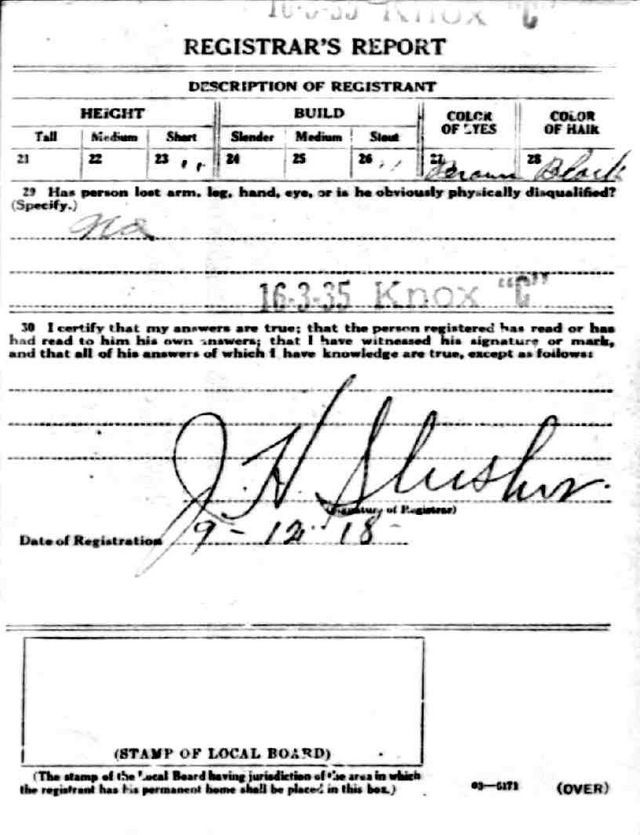 16-3-35 Knox "C"
REGISTRAR'S REPORT
DESCRIPTION OF REGISTRANT
HEIGHT BUILD COLOR OF EYES COLOR OF HAIR
Tall Medium Short Slender Medium Stout
21 22 23 " 24 25 26 " 27 Brown 28 Black
29 Has person lost arm, leg, hand, eye, or is he obviously physically disqualified?
(Specify.)
No
16-3-35 Knox "C"
30 I certify that my answers are true; that the person registered has read or has
had read to him his own answers; that I have witnessed his signature or mark,
and that all of his answers of which I have knowledge are true, except as follows:
J. H. Slusher.
(Signature of Registrar)
Date of Registration 9-12-18-
(STAMP OF LOCAL BOARD)
(The stamp of the Local Board having jurisdiction of the area in which
the registrant has his permanent home shall be placed in this box.)
03—6171 (OVER)